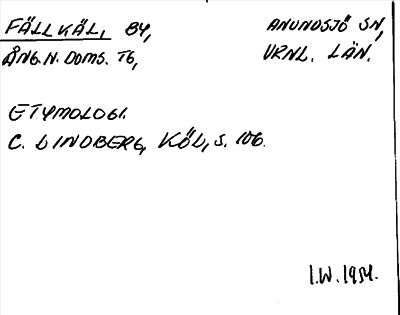 FÄLLKÄL, BY, ANUNDSJÖ SN,
ÅNG.N. DOMS. TG, VRNL. LÄN.
ETYMOLOGI.
C. LINDBERG, KÖL, S. 106.
I.W. 1954.